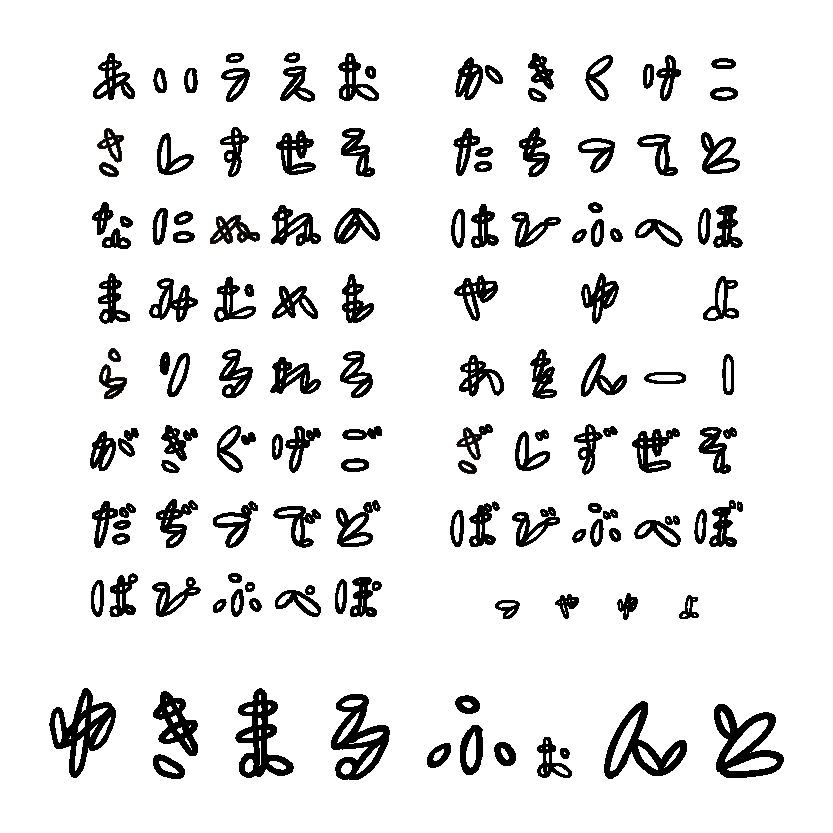 あいうえお かきくけこ
さしすせそ たちつてと
なにぬねの はひふへほ
まみむめも や ゆ よ
らりるれろ わをんー｜
がぎぐげご ざじずぜぞ
だぢづでど ばびぶべぼ
ぱぴぷぺぽ っゃゅょ
ゆきまるふぉんと